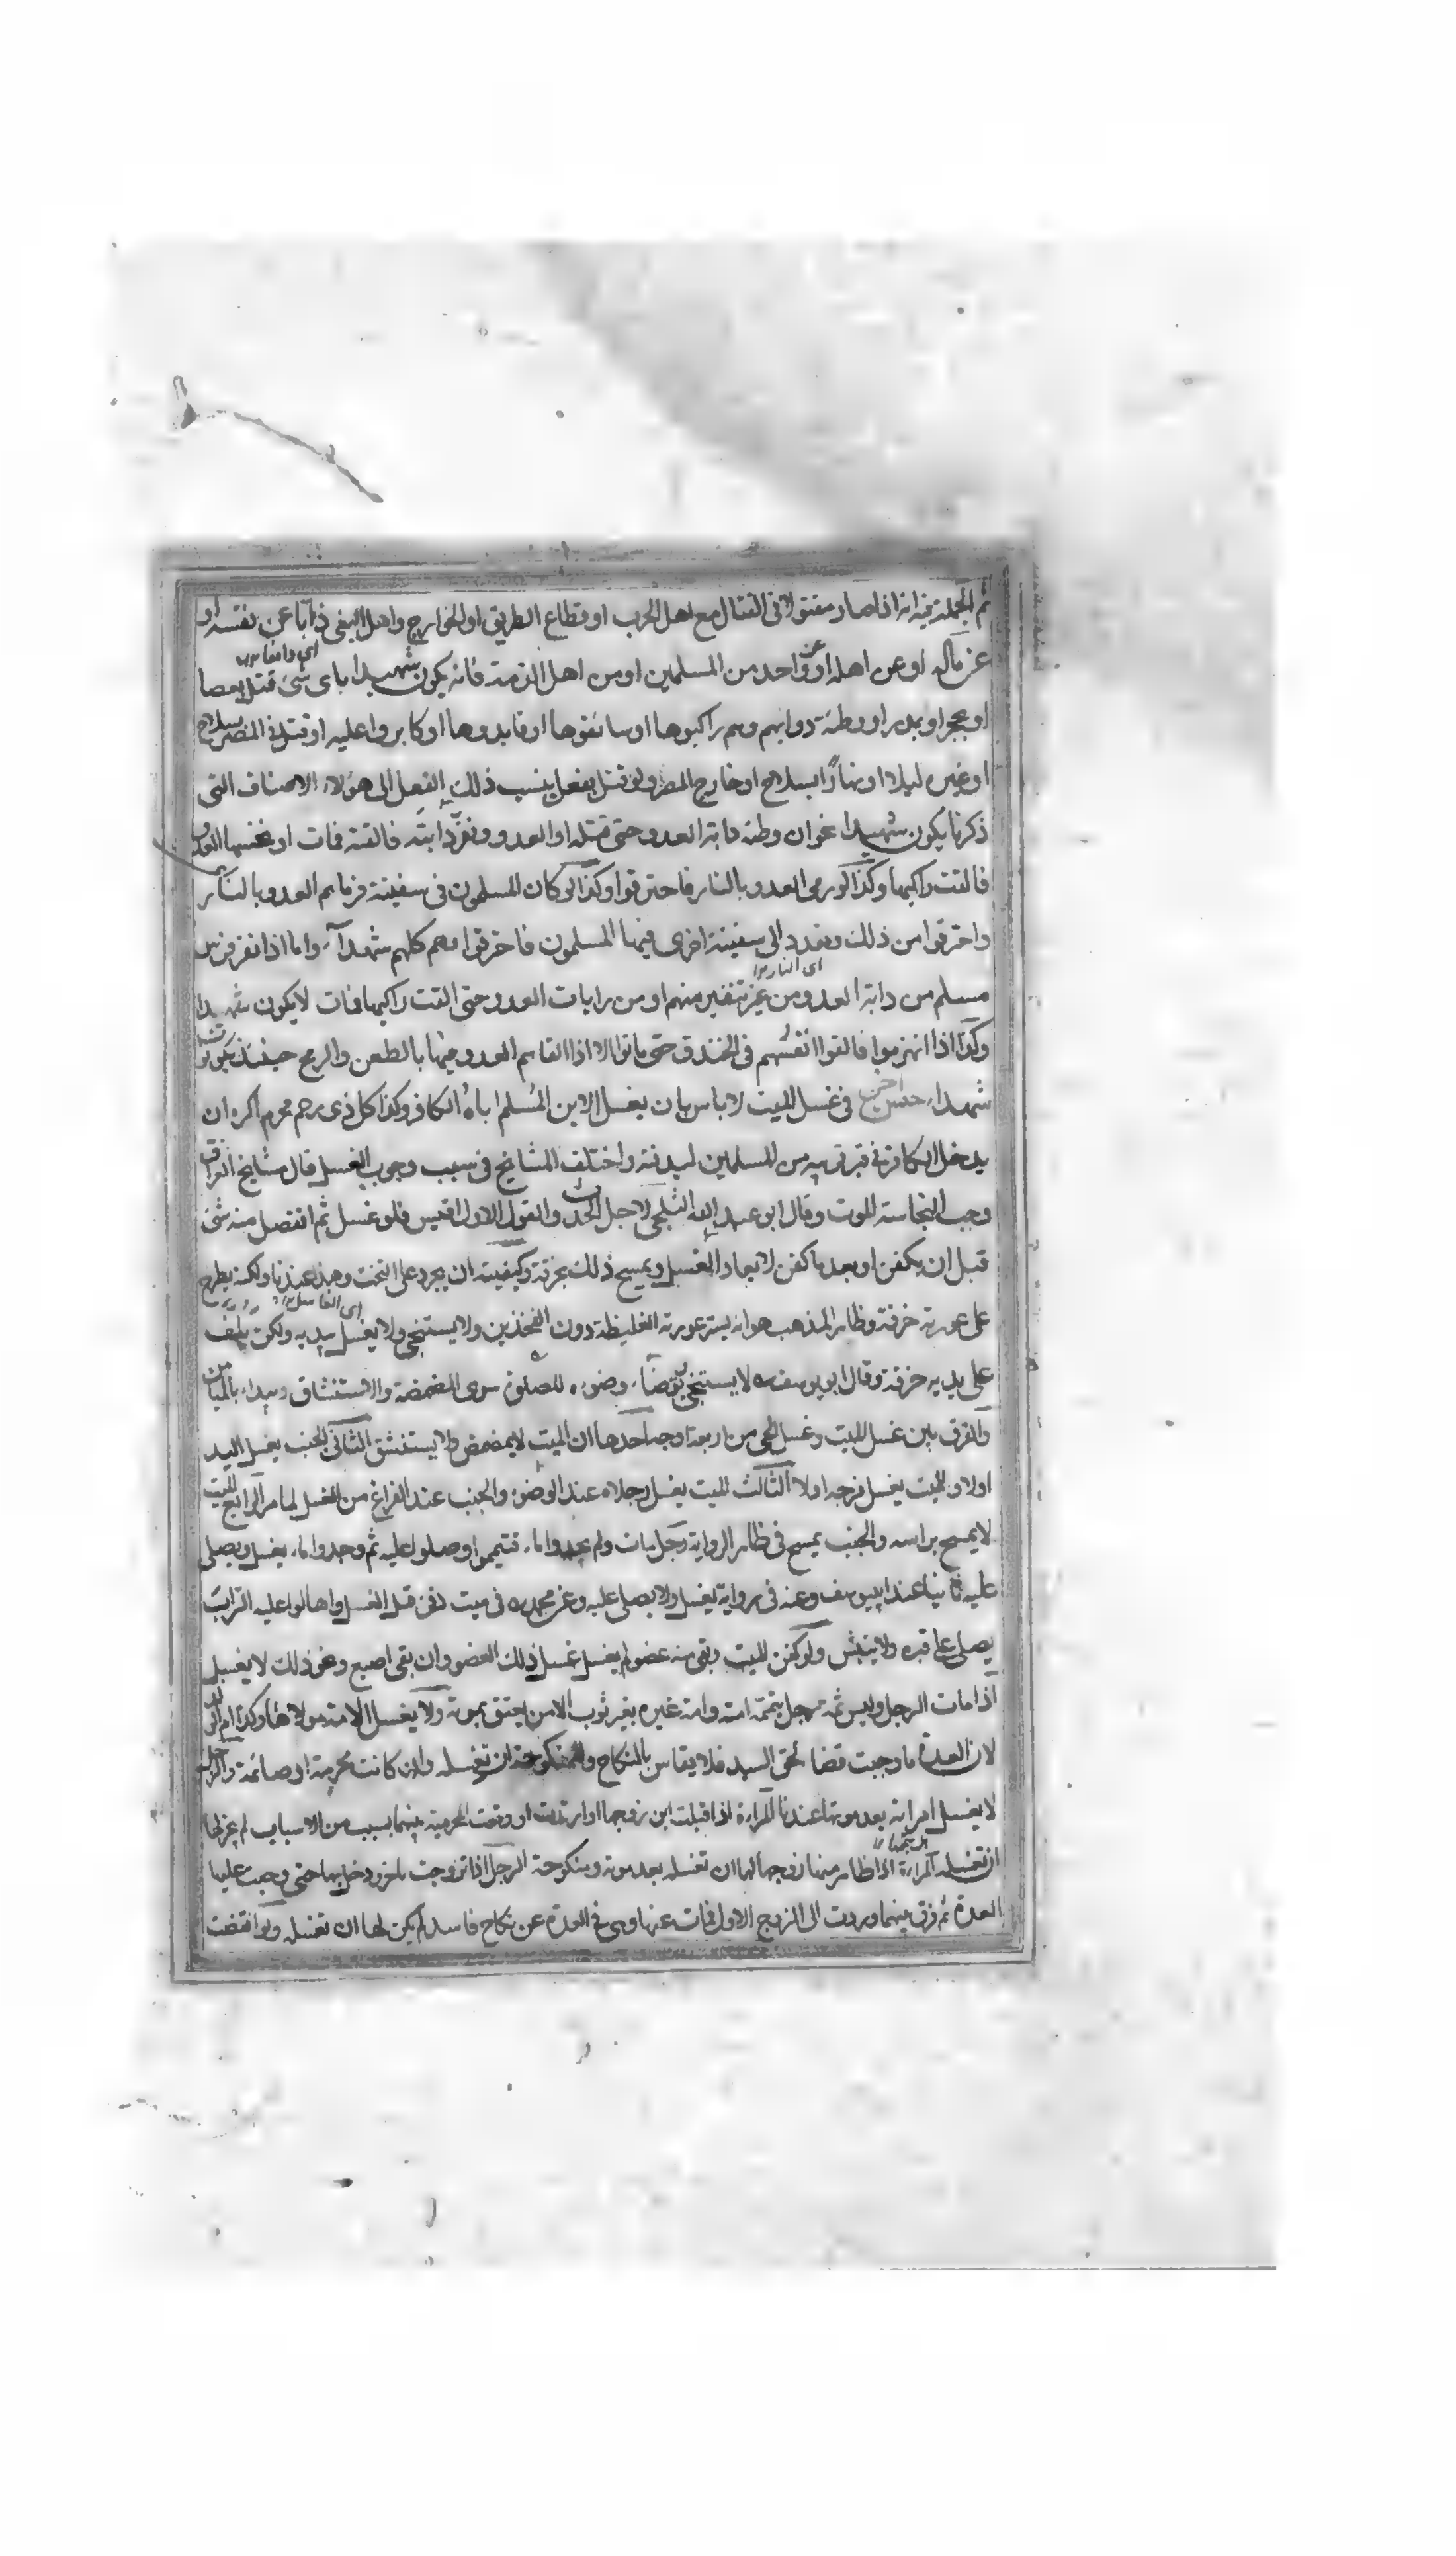 ثم الجملة فيه انه اذا صار مقتولا في القتال مع اهل الحرب او قطاع الطريق او الخوارج واهل البغي ذابا عن نفسه او
اي دافعا
عن ماله او عن اهله او عن واحد من المسلمين او من اهل الذمة فانه يكون شهيدا باي شئ قتل بعصا
او بحجر او بمدر او وطئت دوابهم وهم راكبوها او سائقوها او قايدوها او كابروا عليه او قتل في المصر بسلاح
او غيره ليلا او نهارا بسلاح او خارج المصر ولو قتل بفعل ينسب ذلك الفعل الى هؤلاء الاصناف التي
ذكرنا يكون شهيدا نحو ان وطئه دابة العدو حتى قتله او العدو ونفر دابته فالقته فمات او نخسها العدو
فالقت راكبها وكذا لو رمى العدو بالنار فاحترقوا وكذا لو كان المسلمون في سفينة فرماهم العدو بالنار
واحترقوا من ذلك وتعدد الى سفينة اخرى فيها المسلمون فاحترقوا فهم كلهم شهداء واما اذا نفر فرس
اي النار
مسلم من دابة العدو من غير تنفير منهم او من رايات العدو حتى القت راكبها فمات لا يكون شهيدا
وكذا اذا انهزموا فالقوا انفسهم في الخندق حتى ماتوا الا اذا القاهم العدو فيها بالطعن والرمح حينئذ يكونون
شهداء جنس آخر في غسل الميت لا باس بان يغسل الابن المسلم اباه الكافر وكذا كل ذي رحم محرم اكره ان
يدخل الكافر في قبر قريبه من المسلمين ليدفنه واختلف المشايخ في سبب وجوب الغسل قال مشايخ العراق
وجب النجاسة الموت وقال ابو عبد الله الثلجي لاجل الحدث والقول الاول اقيس فلو غسل ثم انفصل منه شئ
قبل ان يكفن او بعد ما كفن لا يعاد الغسل ويمسح ذلك بخرقة وكيفيته ان يجرد على التخت وهذا عندنا ولكنه يطرح
اي الغاسل
على عورته خرقة وظاهر المذهب هو انه يستر عورته الغليظة دون الفخذين ولا يستنجي ولا يغسل بيديه ولكن يلف
على يديه خرقة وقال ابو يوسف لا يستنجي يتوضأ وضوءه للصلوة سوى المضمضة والاستنشاق ويبدأ بالميامن
والفرق بين غسل الميت وغسل الحي من اربعة اوجه احدها ان الميت لا يمضمض ولا يستنشق الثاني الجنب يغسل اليد
اولا والميت يغسل فرجه اولا الثالث الميت يغسل رجلاه عند الوضوء والجنب عند الفراغ من الغسل لما مر الرابع الميت
لا يمسح براسه والجنب يمسح في ظاهر الرواية رجل مات ولم يجدوا ماء فتيمموا وصلوا عليه ثم وجدوا ماء يغسل ويصلى
عليه ثانيا عند ابي يوسف وعنه في رواية يغسل ولا يصلى عليه وعن محمد في ميت دفن قبل الغسل واهالوا عليه التراب
يصلى على قبره ولا ينبش ولو كفن الميت وبقي منه عضو لم يغسل غسل ذلك العضو وان بقي اصبع ونحو ذلك لا يغسل
اذا مات الرجل وليس ثمه رجل يتممه امته وامة غيره بغير ثوب الا من يعتق بموته ولا يغسل الامة مولاها وكذا ام الولد
لان العدة ما وجبت قضاء لحق السيد فلا يقاس بالنكاح والمنكوحة ان تغسله وان كانت محرمة او صائمة والرجل
لا يغسل امراته بعد موتها عندنا المراءة اذا قبلت ابن زوجها او ارتدت او وقعت الحرمية بينهما بسبب من الاسباب لم يجز لها
ان تغسله المراءة اذا ظاهر منها زوجها لها ان تغسله بعد موته ومنكوحة الرجل اذا تزوجت باخر ودخل بها حتى وجبت عليها
العدة ثم فرق بينهما وردت الى الزوج الاول فمات عنها وهي في العدة عن نكاح فاسد لم يكن لها ان تغسله ولو انقضت